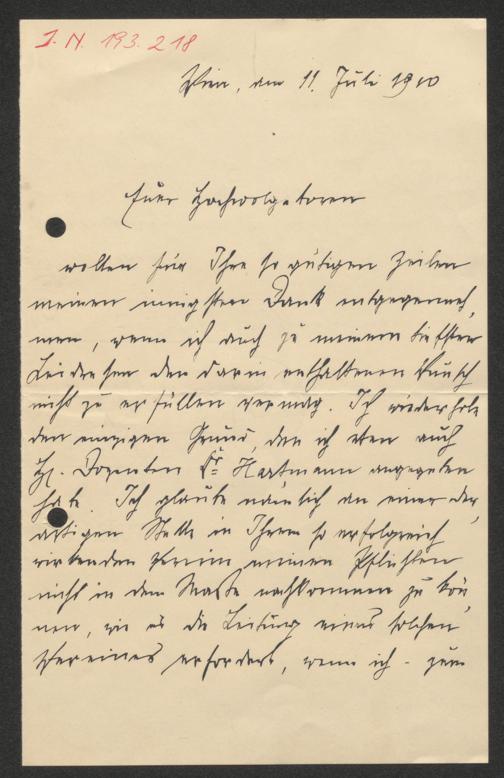 I. N. 193.218
Wien, am 11. Juli 1910
Euer Hochwolgeboren
wollen für Ihre so gütigen Zeilen
meinen innigsten Dank entgegenneh¬
men, wenn ich auch zu meinem tiefsten
Leidwesen den darin enthaltenen Wunsch
nicht zu erfüllen vermag. Ich wiederhole
den einzigen Grund, den ich eben auch
H. Dozenten Dr Hartmann angegeben
habe. Ich glaube nämlich an einer der¬
artigen Stelle in Ihrem so erfolgreich
wirkenden Verein meinen Pflichten
nicht in dem Maße nachkommen zu kön¬
nen, wie es die Leitung eines solchen
Vereines erfordert, wenn ich - zum